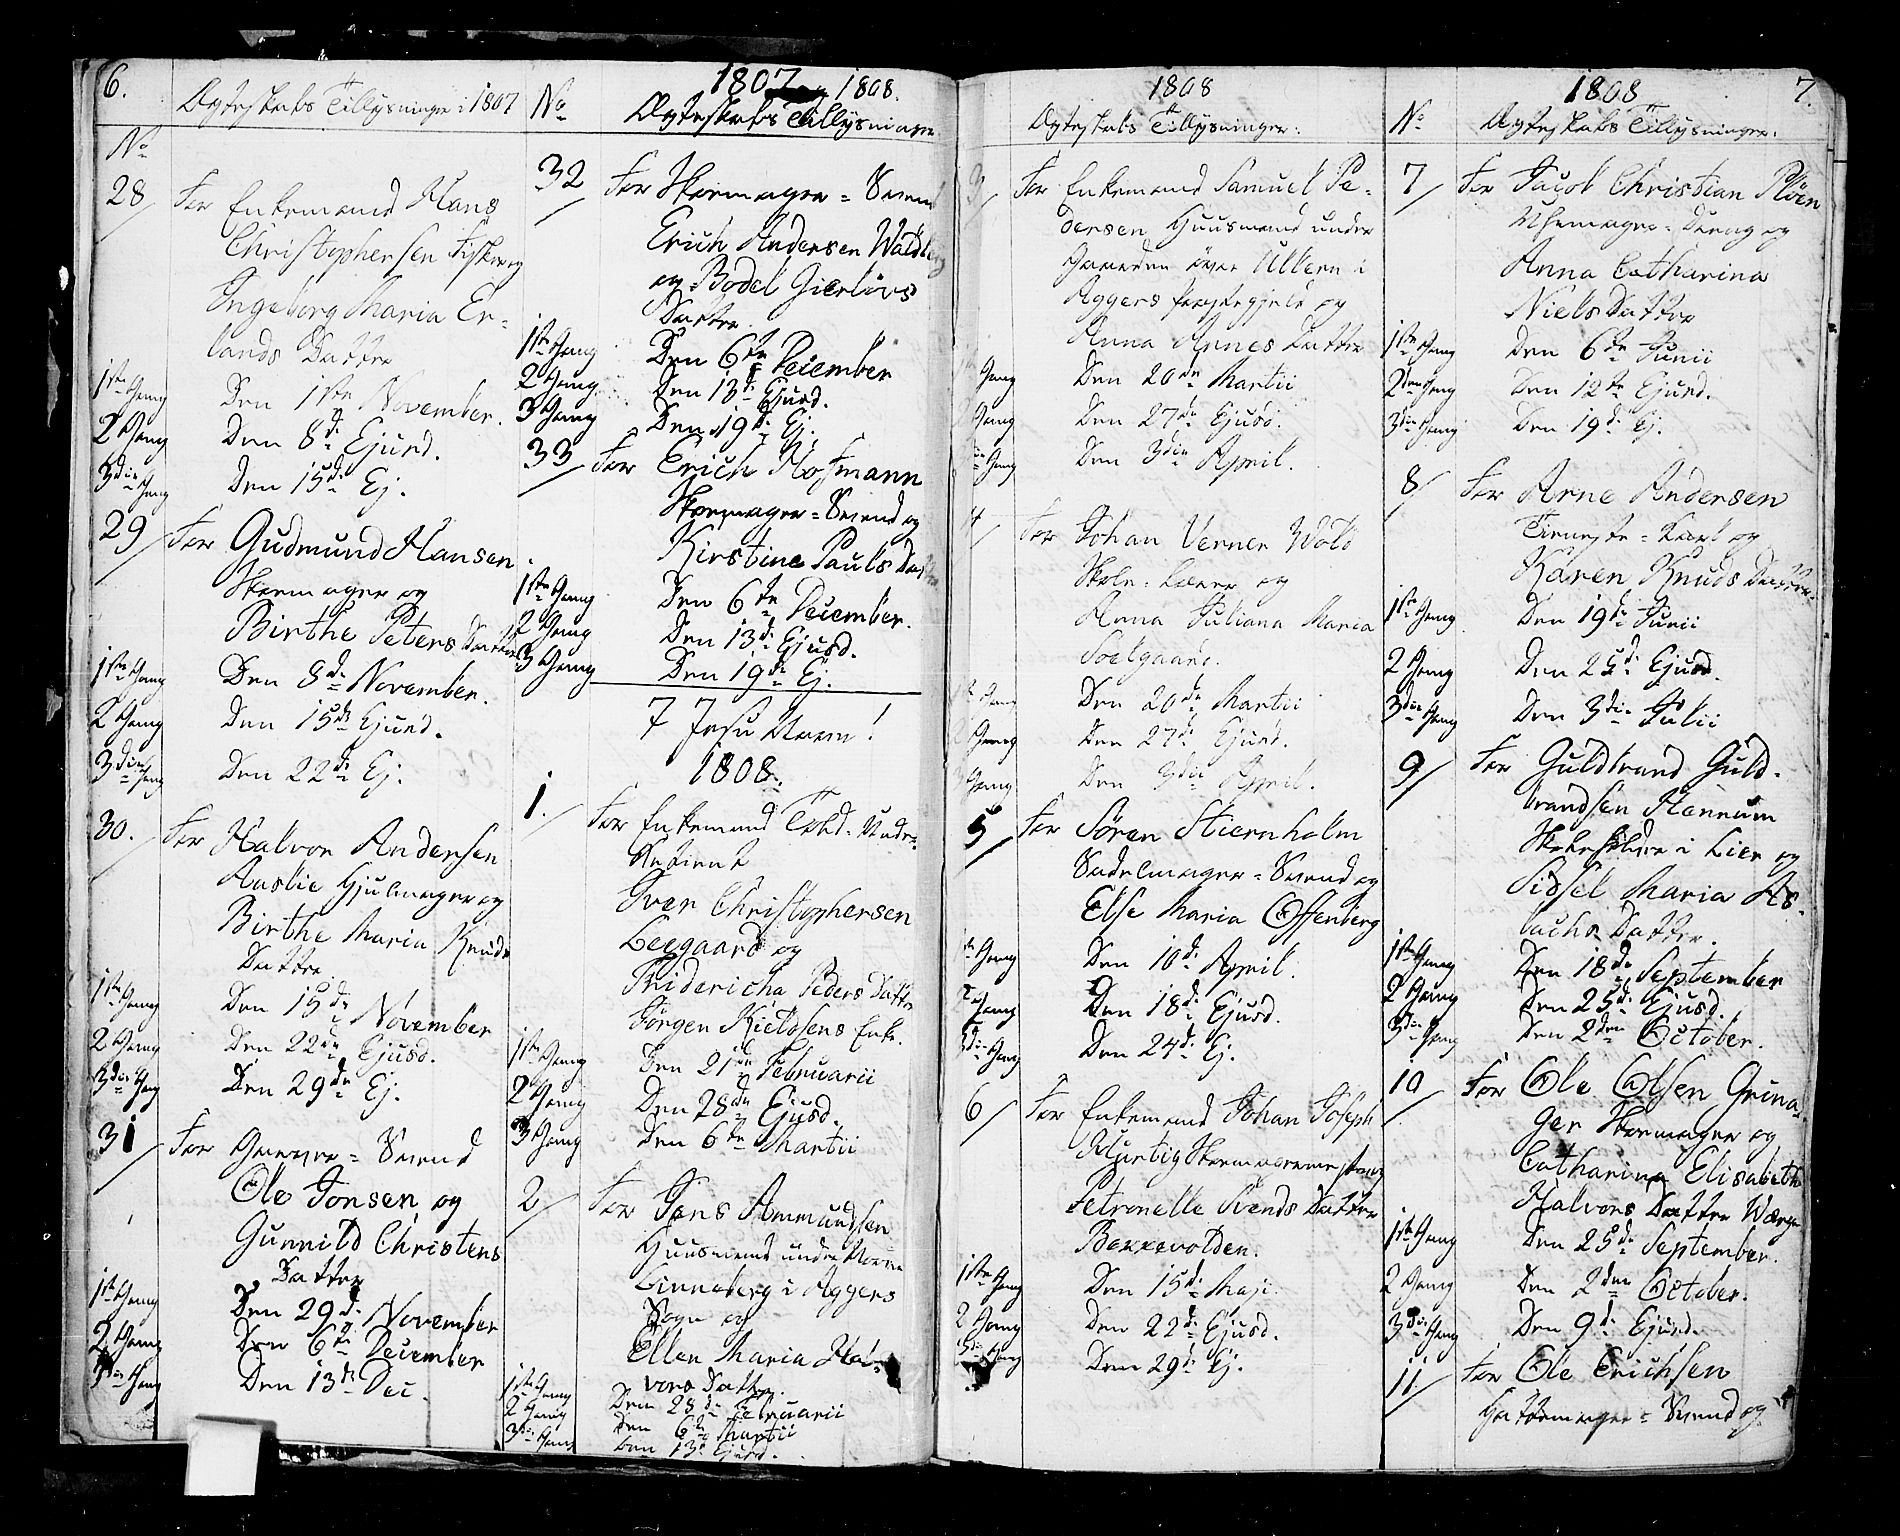 6.
Ægteskabs Tillysninger i 1807
No
28 For Enkemand Hans
Christophersen Fisker og
Ingeborg Maria Er-
lands Datter
1ste Gang Den 1ste November.
2 Gang Den 8de Ejusd.
3die Gang Den 15de Ej.
29 For Gudmund Hansen
Skomager og
Birthe Peters Datter
1ste Gang Den 8de November.
2 Gang Den 15de Ejusd.
3die Gang Den 22de Ej.
30. For Halvor Andersen
Aaslie Hjulmager og
Birthe Maria Knuds
Datter
1ste Gang Den 15de November
2 Gang Den 22de Ejusd.
3die Gang Den 29de Ej.
31 For Garver-Svend
Ole Jonsen og
Gunnild Christens
Datter
1ste Gang Den 29de November
2 Gang Den 6te December
3die Gang Den 13de Dec.
1807 1808.
No Ægteskabs Tillysninger
32 For Skomager-Svend
Erich Andersen Waldberg
og Bodel Gierløvs
Datter.
1ste Gang Den 6te December
2 Gang Den 13de Ejusd.
3 Gang Den 19de Ej.
33 For Erich Hofmann
Skomager-Svend og
Kirstine Pauls Datter
1ste Gang Den 6te December.
2 Gang Den 13de Ejusd.
3 Gang Den 19de Ej.
I Jesu Navn!
1808.
1. For Enkemand Told-Under-
Betient
Iver Christophersen
Leegaard og
Friderica Peders Datter
Jørgen Kieldsens Enke.
1ste Gang Den 21de Februarii
2 Gang Den 28de Ejusd.
3 Gang Den 6te Martii
2 For Jens Ammundsen
Huusmand under
Linneberg i Aggers
Sogn og
Ellen Maria Hal-
vors Datter.
1ste Gang Den 28de Februarii
2 Gang Den 6te Martii
3die Gang Den 13de Ejusd.
1808
Ægteskabs Tillysninger:
3 For Enkemand Samuel Pe-
dersen Huusmand under
Gaarden øvre Ullern i
Aggers Præstegjeld og
Anna Arnes Datter
Gang Den 20de Martii
Gang Den 27de Ejusd.
Gang Den 3die April.
4 For Johan Verner Wold
Skole-Lærer og
Anna Juliana Maria
Soelgaard.
Gang Den 20de Martii
Gang Den 27de Ejusd.
3 Gang Den 3die April.
5 For Søren Stiernholm
Sadelmager-Svend og
Else Maria Offenberg
Gang Den 10de April.
2 Gang Den 18de Ejusd.
3die Gang Den 24de Ej.
6 For Enkemand Johan Joseph
Skomagermester og
Petronelle Svends Datter
Bakkevolden.
1ste Gang Den 15de Maji.
2 Gang Den 22de Ejusd.
3die Gang Den 29de Ej.
1808 7.
No Ægteskabs Tillysninger:
7 For Jacob Christian Pløen
Uhrmager-Dreng og
Anna Catharina
Niels Datter
1ste Gang Den 6te Junii
2den Gang Den 12te Ejusd.
3die Gang Den 19de Ej.
8 For Arne Andersen
Tieneste-Karl og
Karen Knuds Datter
1ste Gang Den 19de Junii
2 Gang Den 25de Ejusd.
3die Gang Den 3die Julii
9 For Guldbrand Guld-
brandsen Hennum
Skoleholder i Lier og
Sidsel Maria As-
lachs Datter.
1ste Gang Den 18de September
2 Gang Den 25de Ejusd.
3die Gang Den 2den October.
10 For Ole Olsen Grina-
ger Skomager og
Catharina Elisabeth
Halvors Datter
1ste Gang Den 25de September.
2 Gang Den 2den October.
3die Gang Den 9de Ejusd.
11. For Ole Erichsen
Hattemager-Svend og